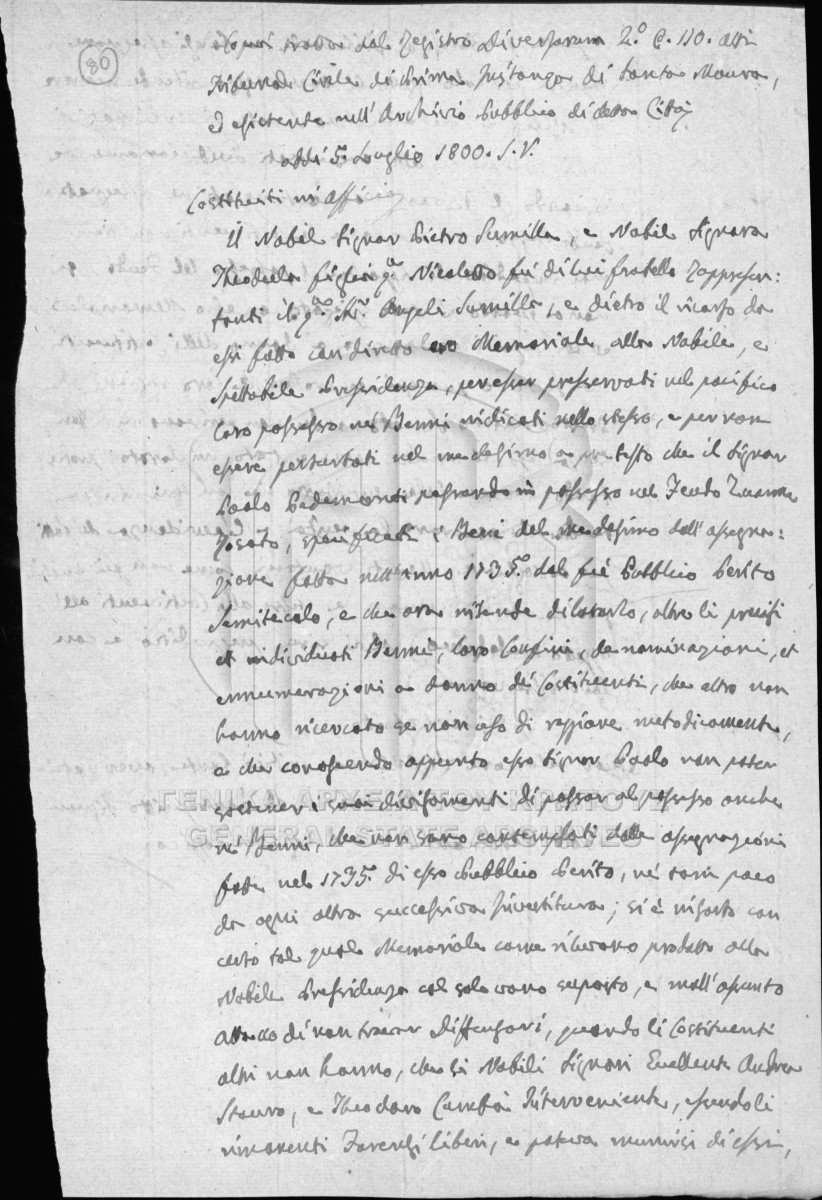 80
tratta dal Registro Diversorum 2.° C. 110. atti
Tribunal Civile di Prima Instanza di Santa Maura,
ed esistente nell'Archivio Pubblico di detta Città
addi 5. Luglio 1800. S.V.
Costituiti in Officio
Il Nobil Signor Pietro Sumilla, e Nobil Signora
Theodula figlia q.m Nicoletto fu di lui fratello rappresen:
tanti il q.m Angeli Sumilla, e dietro il ricorso da
essi fatto con diretto loro Memoriale alla Nobile, e
Spettabile Pressidenza, per esser preservati nel pacifico
loro possesso nei Benni indicati nello stesso, e per non
esere perturbati nel medesimo a pretesto che il Signor
Paolo Pedemonti passando in possesso nel Feudo
specificati i Beni del medesimo dall'assegna:
zione fatta nell'anno 1735. dal fu Pubblico Perito
Semitecolo, e che ora intende dilatarlo, oltre li precisi
et individuati Benni, loro Confini, denominazioni, et
ennumerazioni a danno dei Costituenti, che altro non
hanno ricercato se non uso di raggione metodicamente,
e che conoscendo appunto esso Signor Paolo non poter
sostenere i suoi divisamenti di passar al possesso anche
ne Benni, che non sono contemplati dalla assegnazioni
fatta nel 1735. di esso Pubblico Perito, nè tam poco
da ogni altra successiva Investitura; si è
tal qual Memoriale come rilevano prodotto alla
Nobile Pressidenza col solo vano suposto, e mall'asunto
di non trovar Diffensori, quando li Costituenti
altri non hanno, che li Nobili Signori Eccellente Andrea
Stauro, e Theodoro Interveniente, essendoli
rimanenti Forensi liberi, e poteva munirsi di essi,
ΓΕΝΙΚΑ ΑΡΧΕΙΑ ΤΟΥ ΚΡΑΤΟΥΣ
GENERAL STATE ARCHIVES